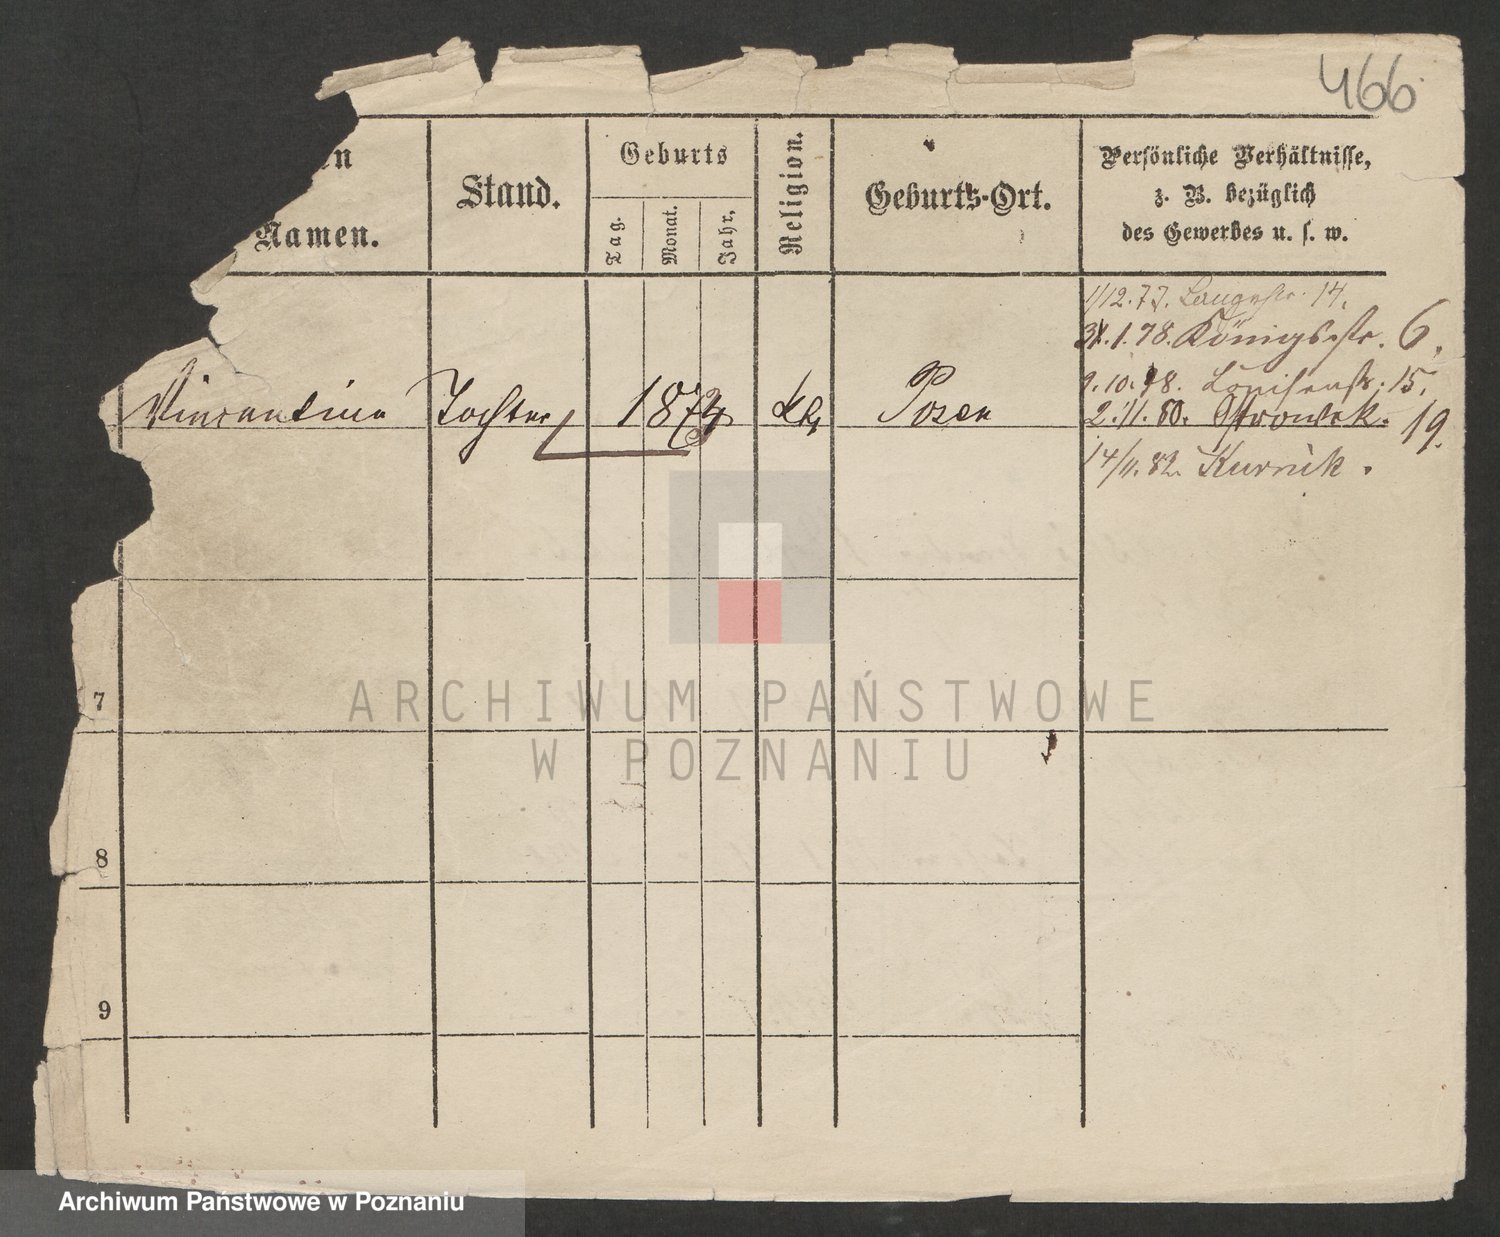 466
en
Namen.
Stand.
Geburts
Tag.
Monat.
Jahr.
Religion.
Geburts-Ort.
Persönliche Verhältnisse,
z. B. bezüglich
des Gewerbes u. s. w.
1/12.77. Langestr. 14.
31.1.78. Königsstr. 6.
9.10.78. Louisenstr. 15.
Vincentina Tochter 1874 kth Posen 2.11.80. Ostrowek 19.
14/11.82. Kurnik.
7
8
9
ARCHIWUM PAŃSTWOWE
W POZNANIU
Archiwum Państwowe w Poznaniu